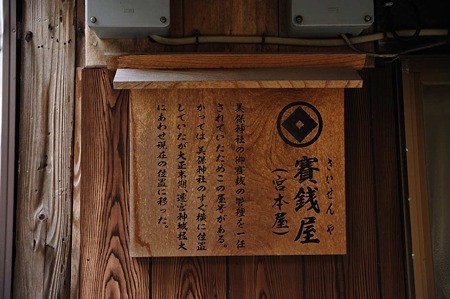 さいせんや
賽銭屋
(宮本屋)
美保神社の御賽銭の管理を一任
されていたためこの屋号がある。
かっては美保神社のすぐ横に位置
していたが大正末期、遷宮神域拡大
にあわせ現在の位置に移った。